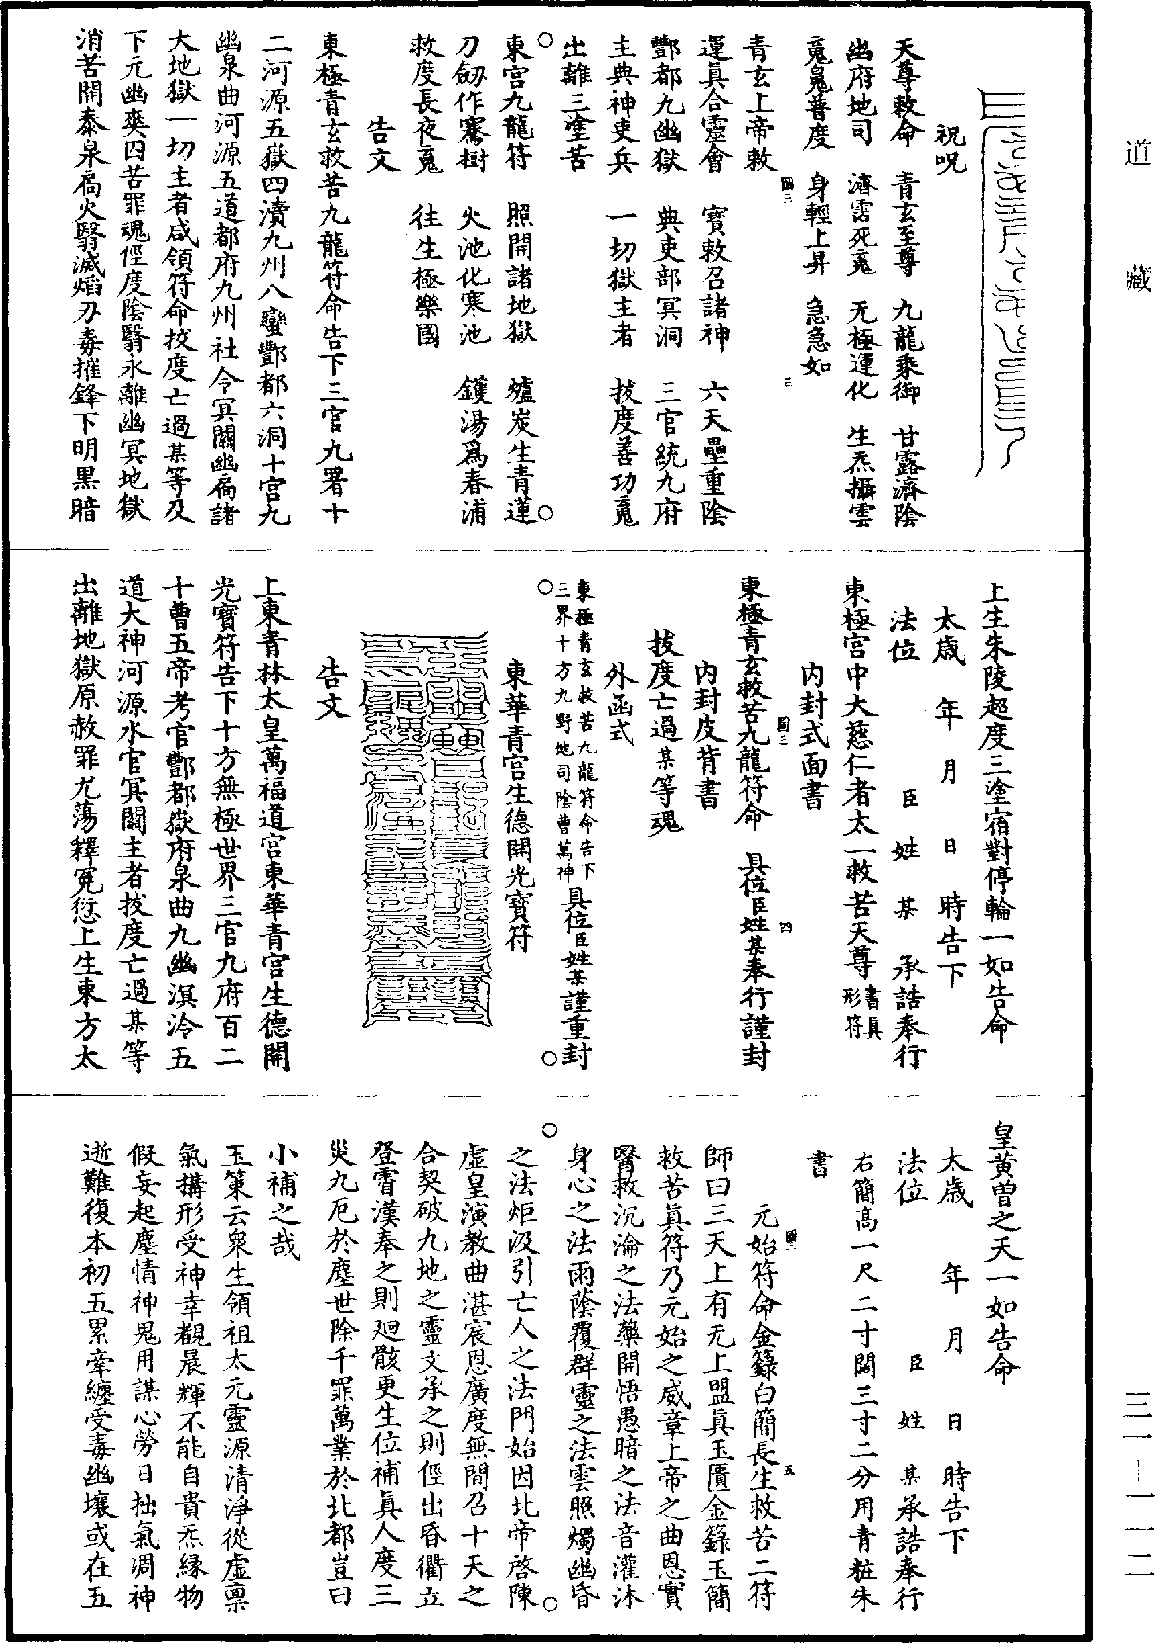 道藏
祝呪
天尊敕命　青玄至尊　九龍乘御　甘露濟陰
幽府地司　濟霑死䰟　无極運化　生炁攝雲
䰟㿝普度　身輕上昇　急急如
青玄上帝敕
運眞合靈會　寶敕召諸神　六天壘重陰
酆都九幽獄　典吏部冥洞　三官統九府
主典神吏兵　一切獄主者　拔度善功䰟
出離三塗苦
東宮九龍符　照開諸地獄　爐炭生青蓮
刀劒作騫樹　火池化寒池　鑊湯爲春浦
救度長夜䰟　往生極樂國
告文
東極青玄救苦九龍符命告下三官九署十
二河源五獄四瀆九州八蠻酆都六洞十宮九
幽泉曲河源五道都府九州社令冥關幽扃諸
大地獄一切主者咸領符命拔度亡過某等及
下元幽爽囚苦罪魂徑度陰翳永離幽冥地獄
消苦開泰泉扃火翳滅焰刃毒摧鋒下明黒暗
上生朱陵超度三塗宿對停輪一如告命
太歲　年　月　日　時告下
法位　臣　姓　某　承誥奉行
東極宮中大慈仁者太一救苦天尊書眞形符
內封式面書
東極青玄救苦九龍符命　具位臣姓某奉行謹封
內封皮背書
拔度亡過某等魂
外函式
東極青玄救苦九龍符命告下三界十方九野地司陰曹萬神具位臣姓某謹重封
東華青宮生德開光寶符
告文
上東青林太皇萬福道宮東華青宮生德開
光寶符告下十方無極世界三官九府百二
十曹五帝考官酆都嶽府泉曲九幽溟泠五
道大神河源水官冥關主者拔度亡過某等
出離地獄原赦罪尤蕩釋冤愆上生東方太
皇黃曽之天一如告命
太歲　年　月　日　時告下
法位　臣　姓　某承誥奉行
右簡高一尺二寸闊三寸二分用青粧朱
書
元始符命金籙白簡長生救苦二符
師曰三天上有无上盟眞玉匱金籙玉簡
救苦眞符乃元始之威章上帝之曲恩實
醫救沉淪之法藥開悟愚暗之法音灌沐
身心之法雨蔭覆群靈之法雲照燭幽昏
之法炬汲引亡人之法門始因北帝啓陳
虛皇演教曲湛宸恩廣度無間召十天之
合契破九地之靈文承之則徑出昏衢立
登霄漢奉之則廻骸更生位補眞人度三
災九厄於塵世除千罪萬業於北都豈曰
小補之哉
玉策云衆生領祖太元靈源清淨從虛禀
氣搆形受神幸觀晨輝不能自貴炁縁物
假妄起塵情神鬼用謀心勞日拙氣凋神
逝難復本初五累牽纏受毒幽壤或在五
三一—一一二